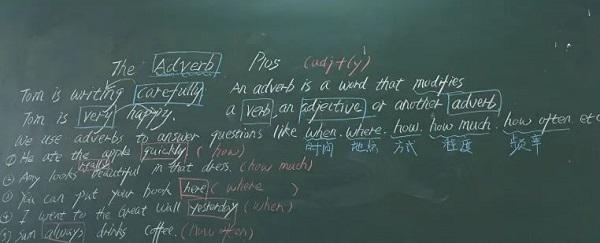 The Adverb Plos (adj+ly)
Tom is writing carefully. An adverb is a word that modifies
Tom is very happy. a verb, an adjective or another adverb
We use adverbs to answer questions like when. where. how. how much. how often. etc
时间 地点 方式 程度 频率
① He ate the apple quickly (how)
② Amy looks really beautiful in that dress. (how much)
③ You can put your book here (where)
④ I went to the Great Wall yesterday (when)
(5) Sam always drinks coffee. (how often)